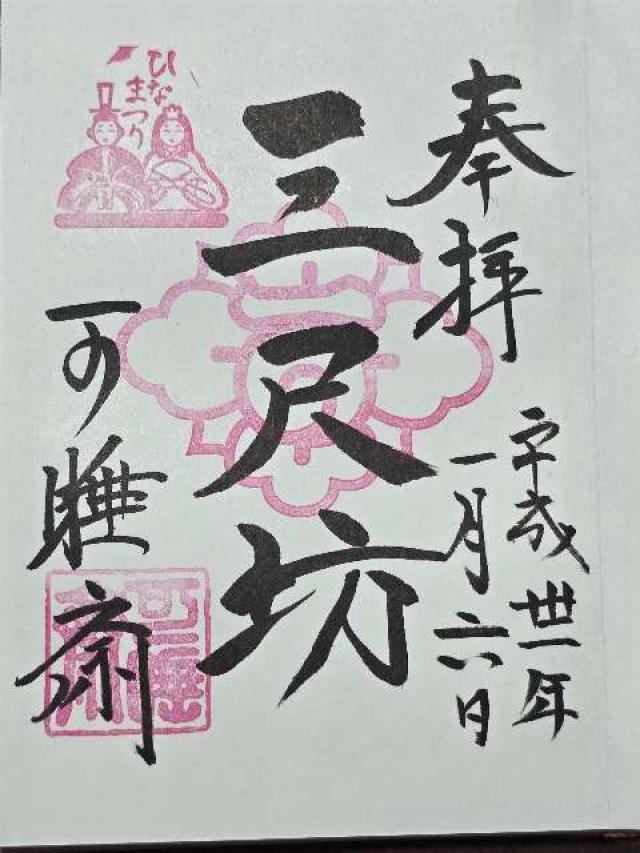 奉拝
平成卅一年
一月六日
三尺坊
可睡斎
ひな
まつり